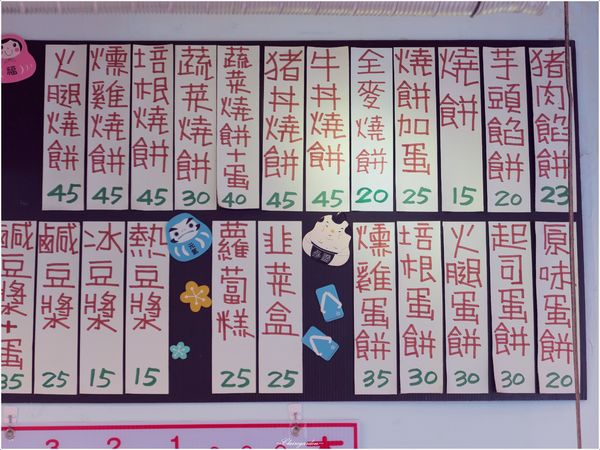 猪肉餡餅 23
芋頭餡餅 20
燒餅 15
燒餅加蛋 25
全麥燒餅 20
牛丼燒餅 45
猪丼燒餅 45
蔬菜燒餅+蛋 40
蔬菜燒餅 30
培根燒餅 45
燻雞燒餅 45
火腿燒餅 45
福
原味蛋餅 20
起司蛋餅 30
火腿蛋餅 30
培根蛋餅 30
燻雞蛋餅 35
韭菜盒 25
蘿蔔糕 25
熱豆漿 15
冰豆漿 15
鹹豆漿 25
鹹豆漿+蛋 35
3 2 1